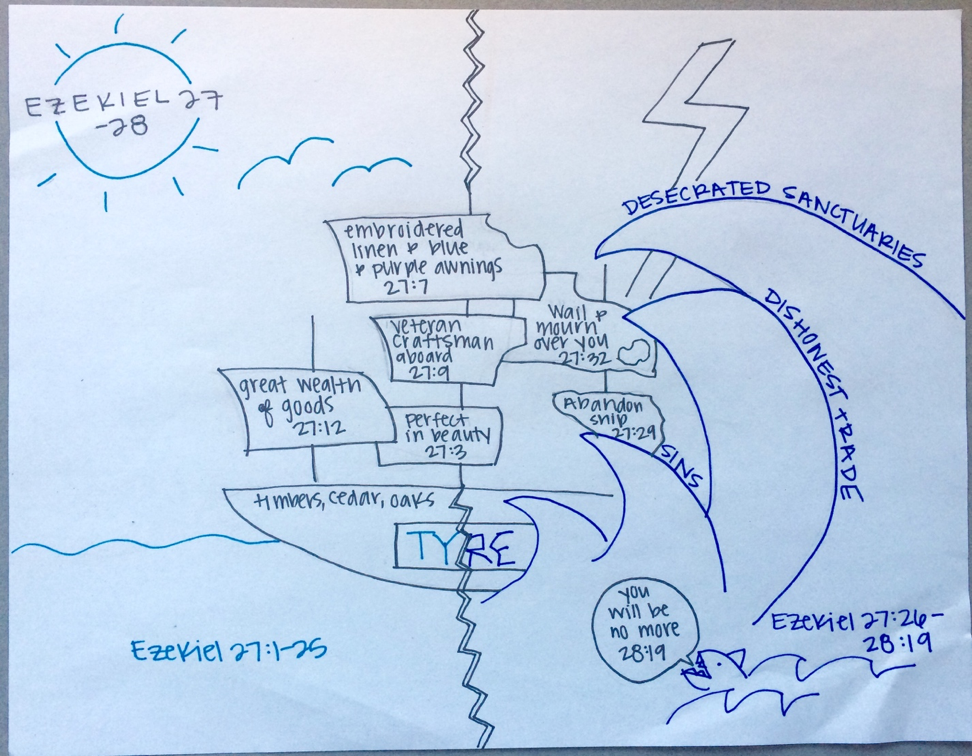 EZEKIEL 27
-28
embroidered
linen & blue
& purple awnings
27:7
veteran
craftsman
aboard
27:9
great wealth
of goods
27:12
perfect
in beauty
27:3
timbers, cedar, oaks
TYRE
Ezekiel 27:1-25
DESECRATED SANCTUARIES
DISHONEST TRADE
SINS
Wail &
mourn
over you
27:32
Abandon
ship
27:29
you
will be
no more
28:19
Ezekiel 27:26-
28:19